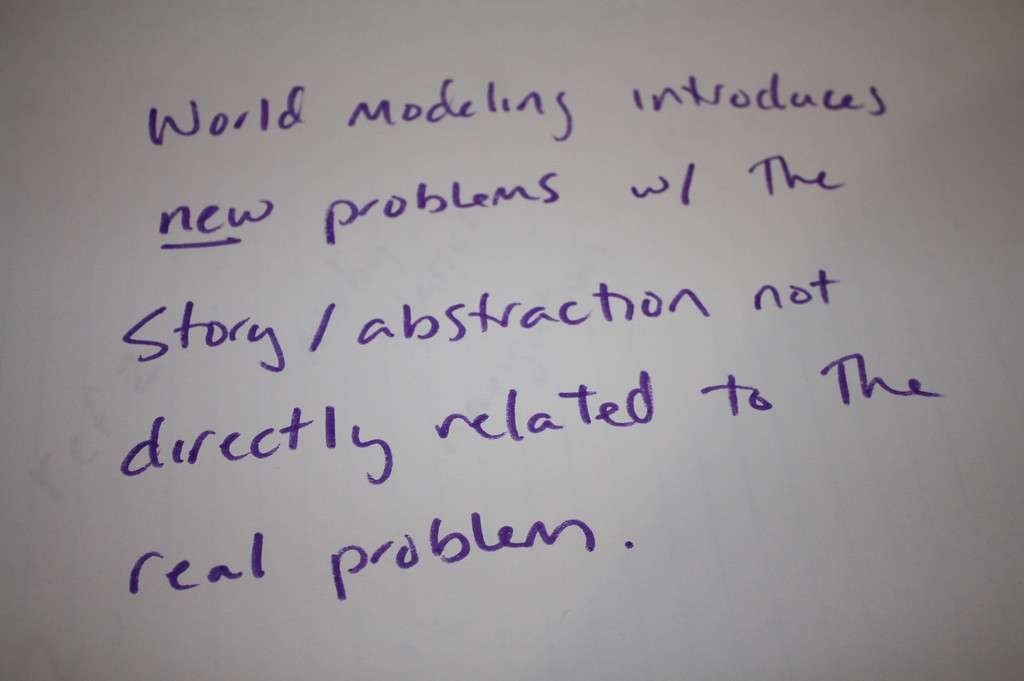 World modeling introduces
new problems w/ The
Story / abstraction not
directly related to The
real problem.